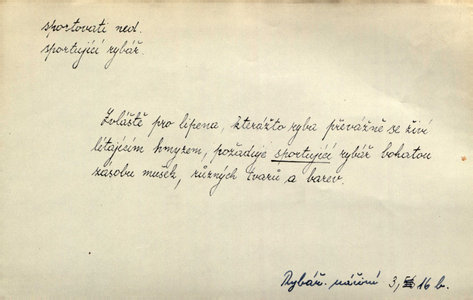 sportovati ned.
sportující rybář.
Zvláště pro lipena, kterážto ryba převážně se živí
létajícím hmyzem, požaduje sportující rybář bohatou
zásobu mušek, různých tvarů a barev.
Rybář. náčiní 3, 16 b.